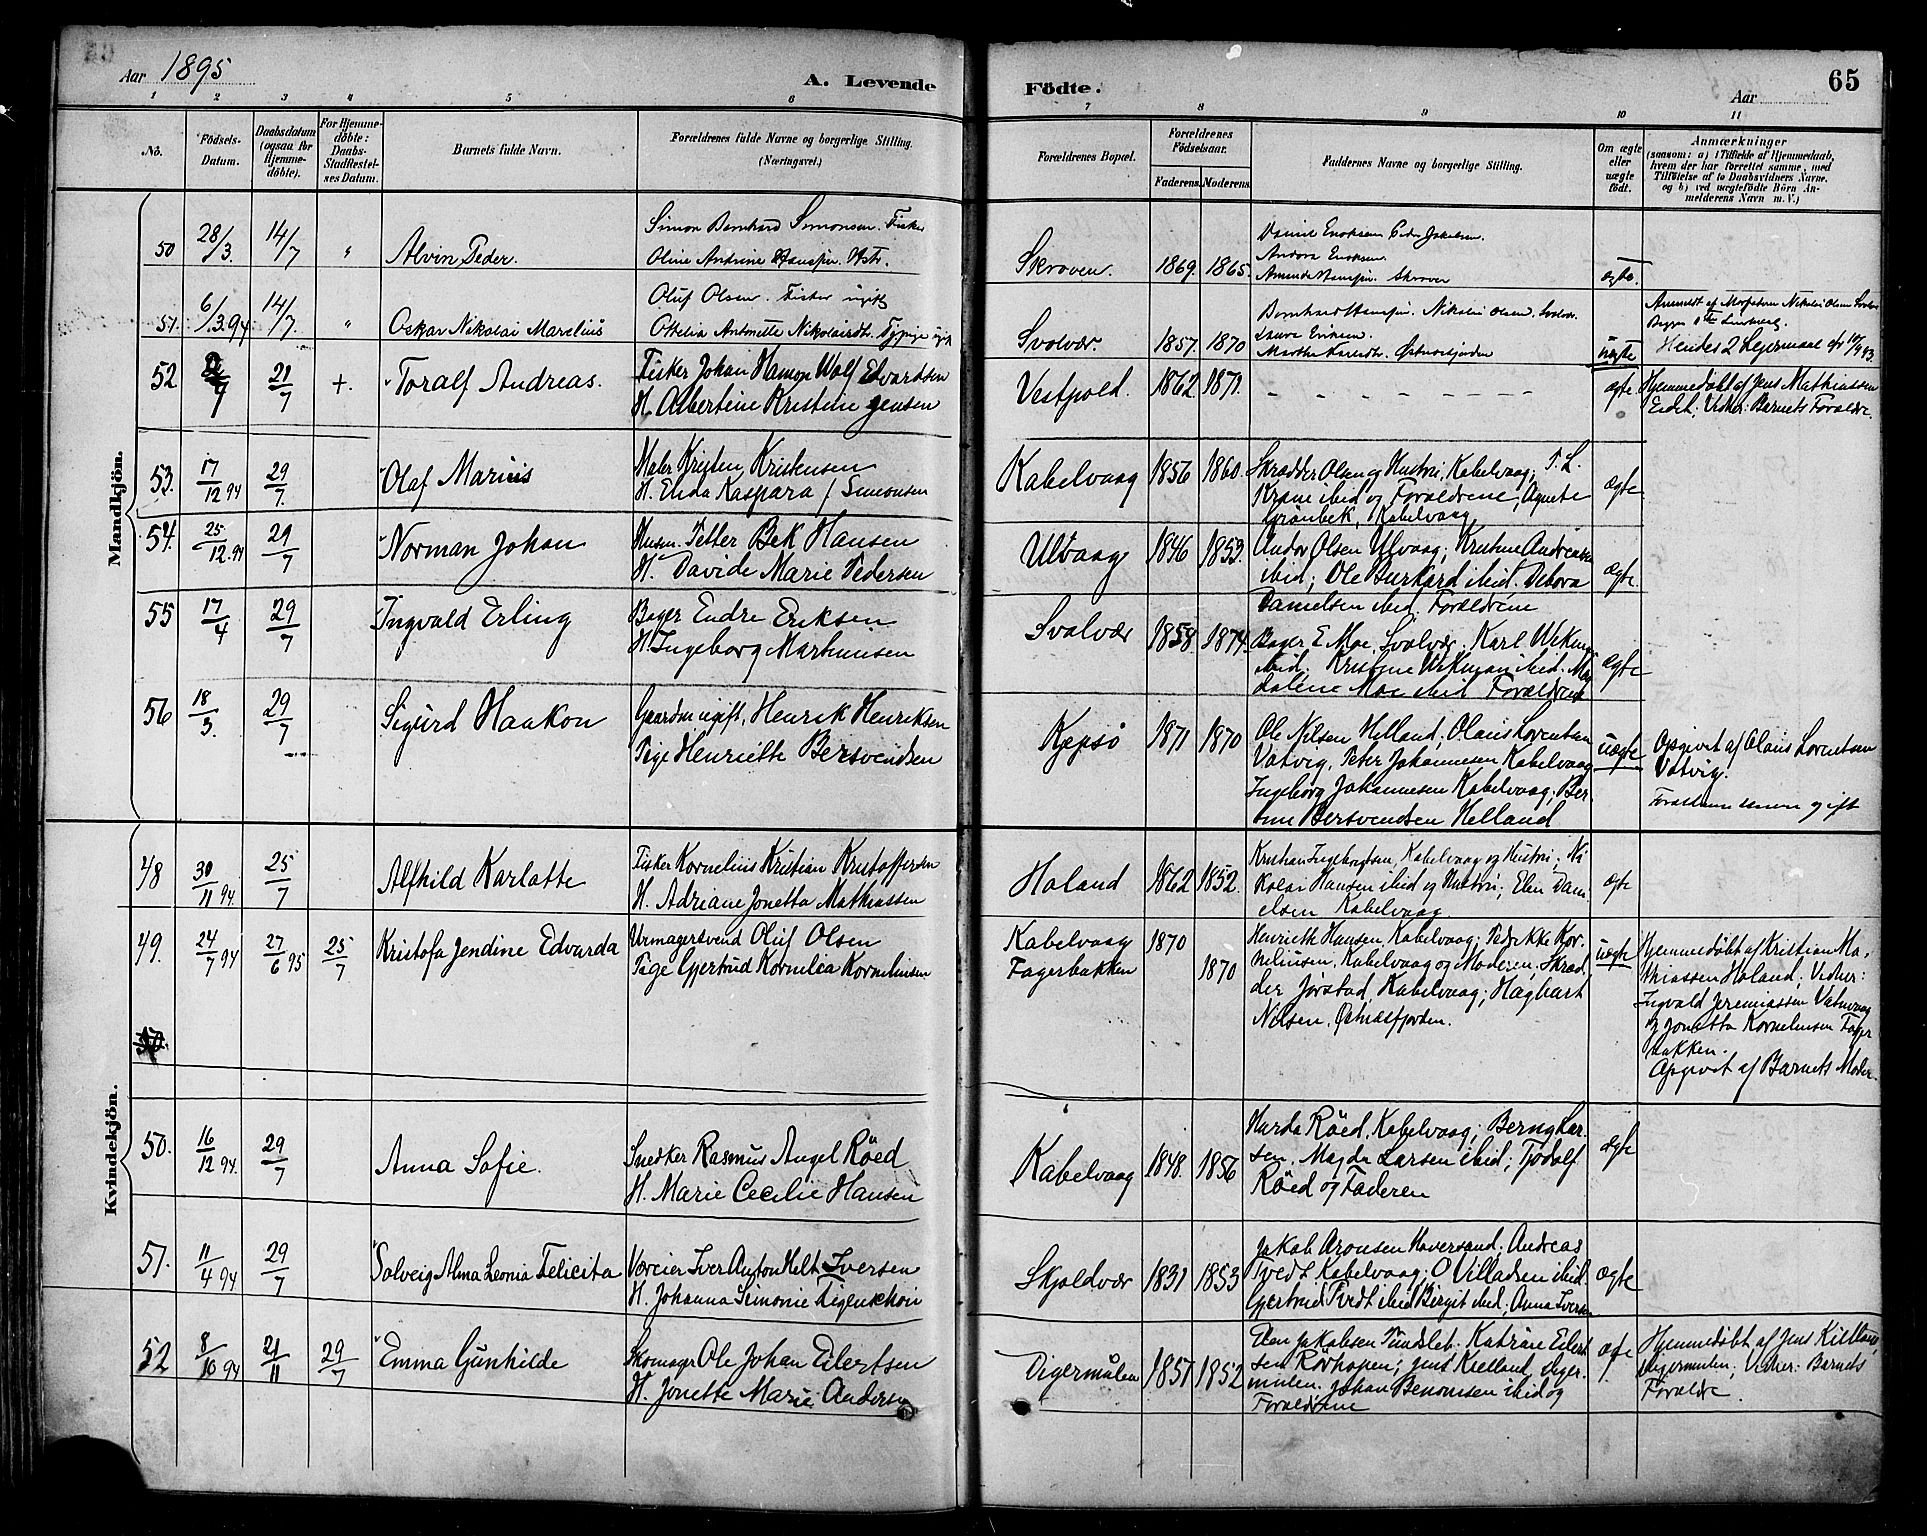 Aar 1895
A. Levende
Födte.
Aar
65
1 2 3 4 5 6 7 8 9 10 11
No.
Födsels-
Datum.
Daabsdatum
(ogsaa for
Hjemme-
döbte).
For Hjemme-
döbte:
Daabs-
Stadfæstel-
ses Datum.
Barnets fulde Navn.
Forældrenes fulde Navne og borgerlige Stilling.
(Næringsvei.)
Forældrenes Bopæl.
Forældrenes
Födselsaar.
Faderens. Moderens.
Faddernes Navne og borgerlige Stilling.
Om ægte
eller
uægte
födt.
Anmærkninger
(saasom: a) i Tilfælde af Hjemmedaab,
hvem der har forrettet samme, med
Tilföielse af to Daabsvidners Navne,
og b) ved uægtefödte Börn An-
melderens Navn m. V.)
Mandkjön.
50 28/3. 14/7 " Alvin Peder.
Simon Bernhard Simonsen. Fisker
Oline Andrine Hanspr. Hstr.
Skroven. 1869. 1865.
Daniel Enoksen Peder Jakobsen.
Andora Enoksen.
Amanda Hanspr. Skroven
ægte.
51. 6/3.94 14/7. " Oskar Nikolai Marelius
Oluf Olsen. Fisker ugift
Ottelia Antonette Nikolaisdt. Tjpige ugift
Svolvær. 1857. 1870
Bernhard Hanspr. Nikolai Olsen. Svolv.
Laura Eriksen.
Marthe Karlsdt. Østnesfjorden
uægte
Anmeldt af Morfaderen Nikolai Olsen Svolvær
Hendes 2 Lejermaal
52. 7 21/7 +. Toralf Andreas.
Fisker Johan Hamon Wolf Edvardsen
H. Albertine Kristine Jensen
Vestpold. 1862 1871.
- - - - - - - -
ægte
Hjemmedøbt af Jens Mathiassen
Eidet; Vidner: Barnets Forældre.
53. 17/12 94 29/7. Olaf Marius
Maler Kristen Kristensen
H. Elida Kaspara f Simonsen
Kabelvaag 1856 1860.
Skrædder Olsen og Hustru, Kabelvaag; T. L.
Krane ibid og Forældrene; Agnete
Grønbek, Kabelvaag
ægte
54. 25/12.94 29/7 Norman Johan
Husm. Petter Bek Hansen
H. Davide Marie Pedersen
Ulvaag 1846 1853.
Andor Olsen Ulvaag; Kristine Andreassen
ibid; Ole Burkard ibid. Debora
Danielsen ibid. Forældrene
ægte.
55 17/4 29/7 Ingvald Erling
Bager Endre Eriksen
H. Ingeborg Martinusen
Svolvær 1858 1874.
Bager E Moe, Svolvær; Karl Wikman
ibid. Kristine Wikman ibid. Mag
dalene Moe ibid Forældrene
ægte
56 18/3. 29/7 Sigurd Haakon
Gaardm ugift, Henrik Henriksen
Pige Henriette Bersvendsen
Kjepsø 1871 1870
Ole Nilsen Helland; Olaus Lorentsen
Vatvig, Peter Johannesen Kabelvaag
Ingeborg Johannesen Kabelvaag; Ber-
tine Bersvendsen Helland
uægte
Opgivet af Olaus Lorentsen
Vatvig.
Forældrene senere gift
Kvindekjön.
48 30/11 94. 25/7 Alfhild Karlotte
Fisker Kornelius Kristian Kristoffersen
H. Adriane Jonetta Mathiassen
Holand 1862 1852.
Kristian Ingebrigtsen, Kabelvaag og Hustru; Ni
kolai Hansen ibid og Hustru; Elen Dani-
elsen Kabelvaag
ægte
49. 24/7 94 27/6 95 25/7 Kristofa Jendine Edvarda
Urmagersvend Oluf Olsen
Pige Gjertrud Kornelia Korneliussen
Kabelvaag
Fagerbakken
1870 1870
Henriette Hansen, Kabelvaag; Fredrikke Kor-
neliusen, Kabelvaag og Moderen; Skræd
der Jørstad, Kabelvaag; Haghart
Nilsen, Østnæsfjorden.
uægte
Hjemmedøbt af Kristian Ma-
thiassen Holand; Vidner:
Ingvald Jeremiassen Vatnvaag
og Jonetta Korneliussen Fager
bakken.
Opgivet af Barnets Moder.
50. 16/12 94. 29/7 Anna Sofie.
Snedker Rasmus Angel Röed
H. Marie Cecilie Hansen
Kabelvaag 1848. 1856
Hurda Röed, Kabelvaag; Bernt Lar-
sen. Magda Larsen ibid; Tjodolf
Röed og Faderen
ægte
51. 11/4 94 29/7 Solveig Alma Leonia Felicita
Væreier Iver Anton Helt Iversen
H. Johanna Simonie Eigenschou
Skjoldvær 1831 1853
Jakob Aronsen Haversand; Andreas
Tvedt Kabelvaag; O Villadsen ibid.
Gjertrud Tvedt ibid Birgit ibid; Anna Iversen
ægte
52 8/10 94 21/11 29/7 Emma Gunhilde
Skomager Ole Johan Eilertsen
H. Jonette Marie Andersen
Digermulen 1857 1852
Elen Jakobsen Tundslet. Katrine Eilert
sen Rörhopen; Jens Kielland, Diger-
mulen. Johan Benonisen ibid og
Forældrene
ægte
Hjemmedøbt af Jens Kielland,
Digermulen; Vidner: Barnets
Forældre.